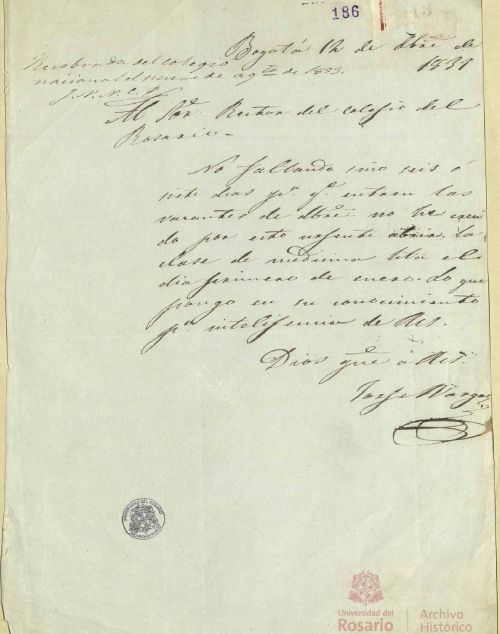 186
Bogotá 12 de Dbre de
1831
del colegio
nacional el de agto de 1833.
Al Sor. Rector del colegio del
Rosario.
No faltando sino seis ó
siete dias pa. qe. entren las
vacantes de dbre. no he crei
do por esto urgente abrir la
clase de medicina
dia primero de enero. Lo que
pongo en su conocimiento
pa. inteligencia de
Dios gue. á
Jorge Vargas
Universidad del
Rosario
Archivo
Histórico